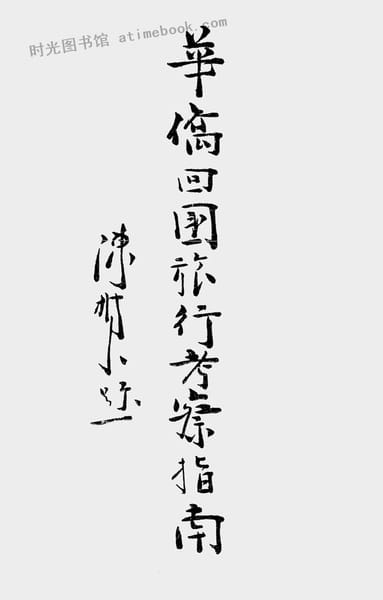 时光图书馆 atimebook.com
華僑回國旅行考察指南
陳樹人題